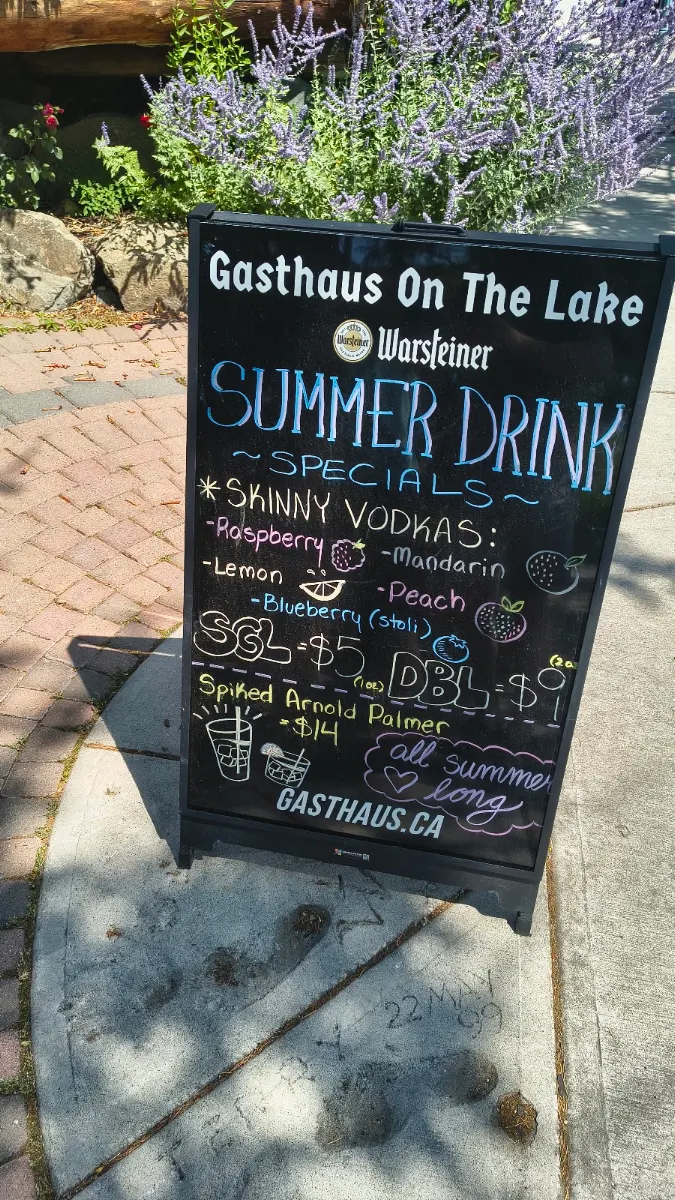 Gasthaus On The Lake
Warsteiner Warsteiner
SUMMER DRINK
~SPECIALS~
*SKINNY VODKAS:
-Raspberry -Mandarin
-Lemon -Peach
-Blueberry (stoli)
SGL =$5 (1oz) DBL =$9 (2o
Spiked Arnold Palmer
-$14
all summer
long
GASTHAUS.CA
22 MAY
99